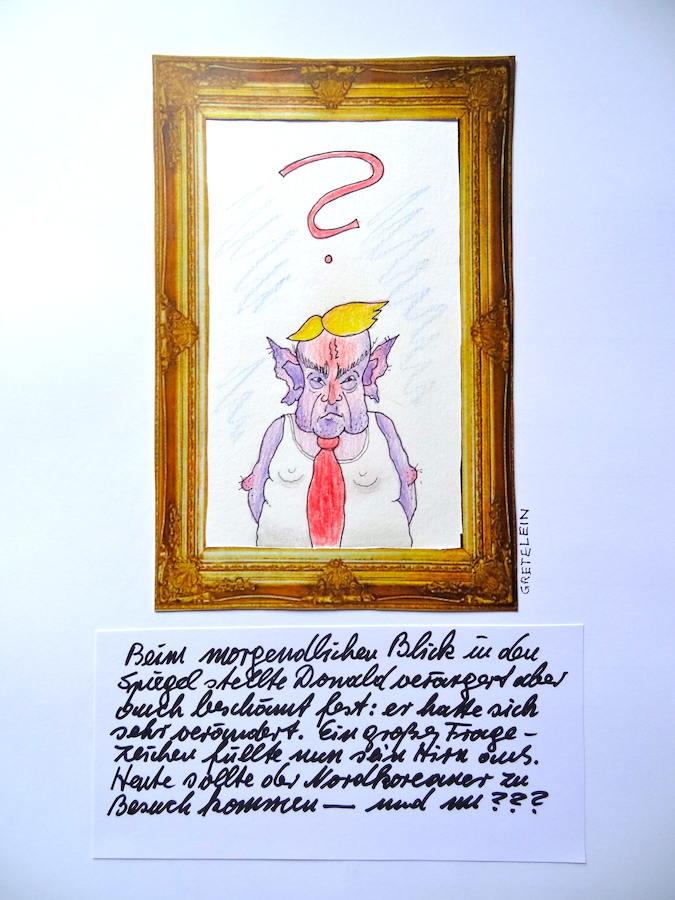 ?
GRETELEIN
Beim morgendlichen Blick in den
Spiegel stellte Donald verärgert aber
auch beschämt fest: er hatte sich
sehr verändert. Ein großes Frage-
zeichen füllte nun sein Hirn aus.
Heute sollte der Nordkoreaner zu
Besuch kommen — und nu ???